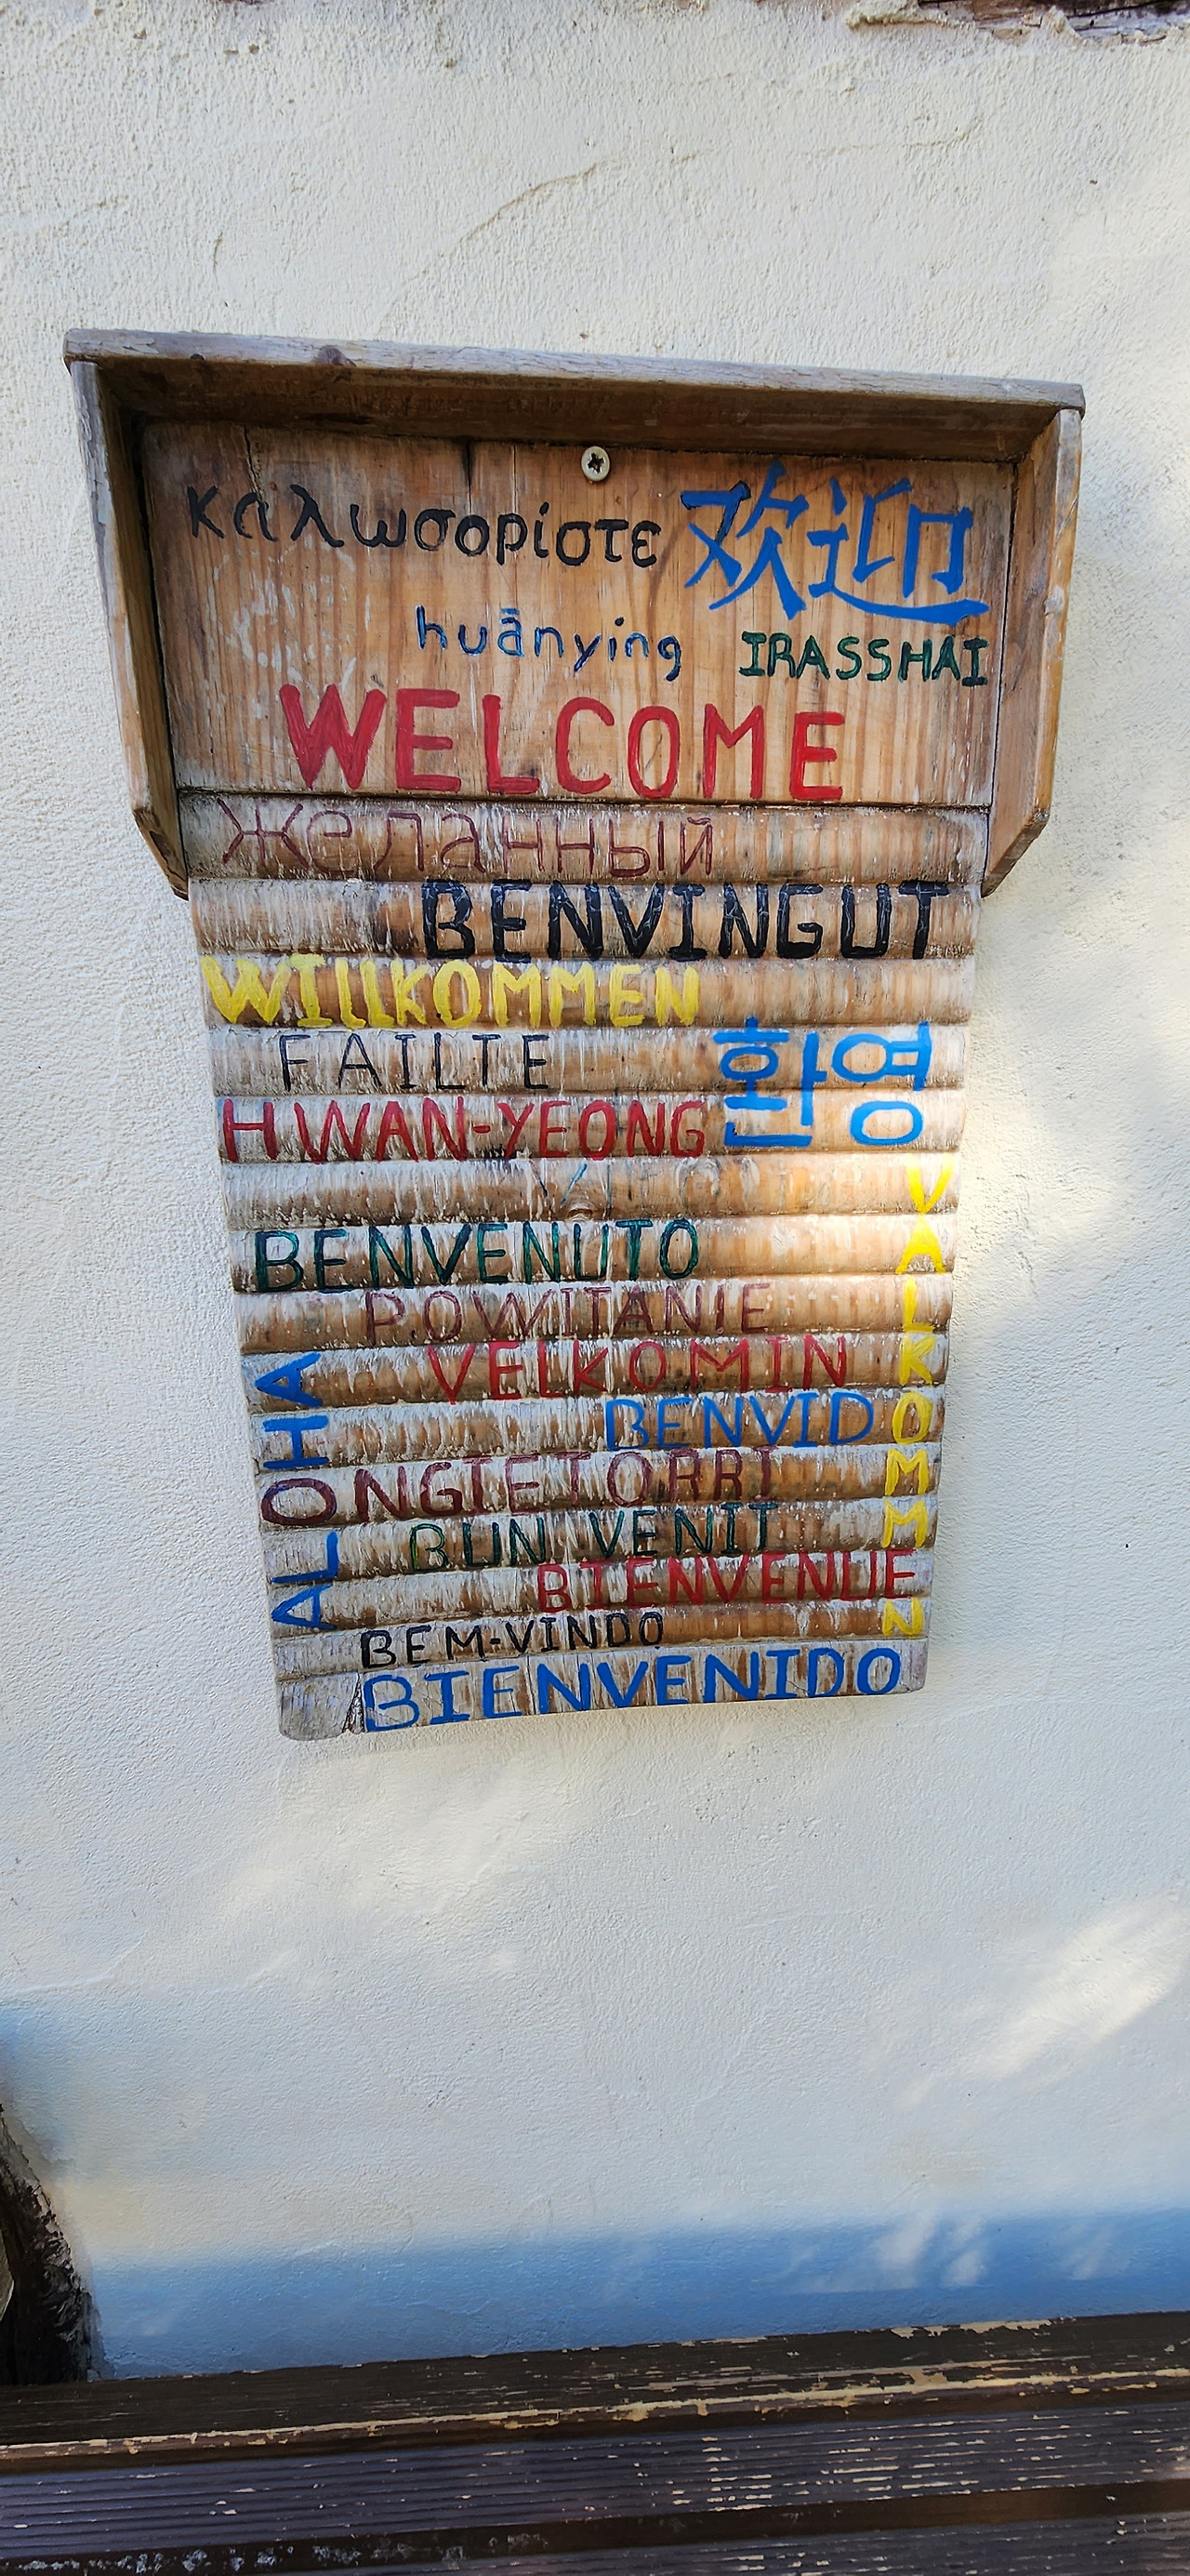 καλωσορίστε 欢迎
huānying IRASSHAI
WELCOME
Желанный
BENVINGUT
WILLKOMMEN
FAILTE 환영
HWAN-YEONG
BENVENUTO
POWITANIE
VELKOMIN
BENVID
ONGIETORRI
BUN VENIT
BIENVENUE
BEM-VINDO
BIENVENIDO
ALOHA
VALKOMMEN